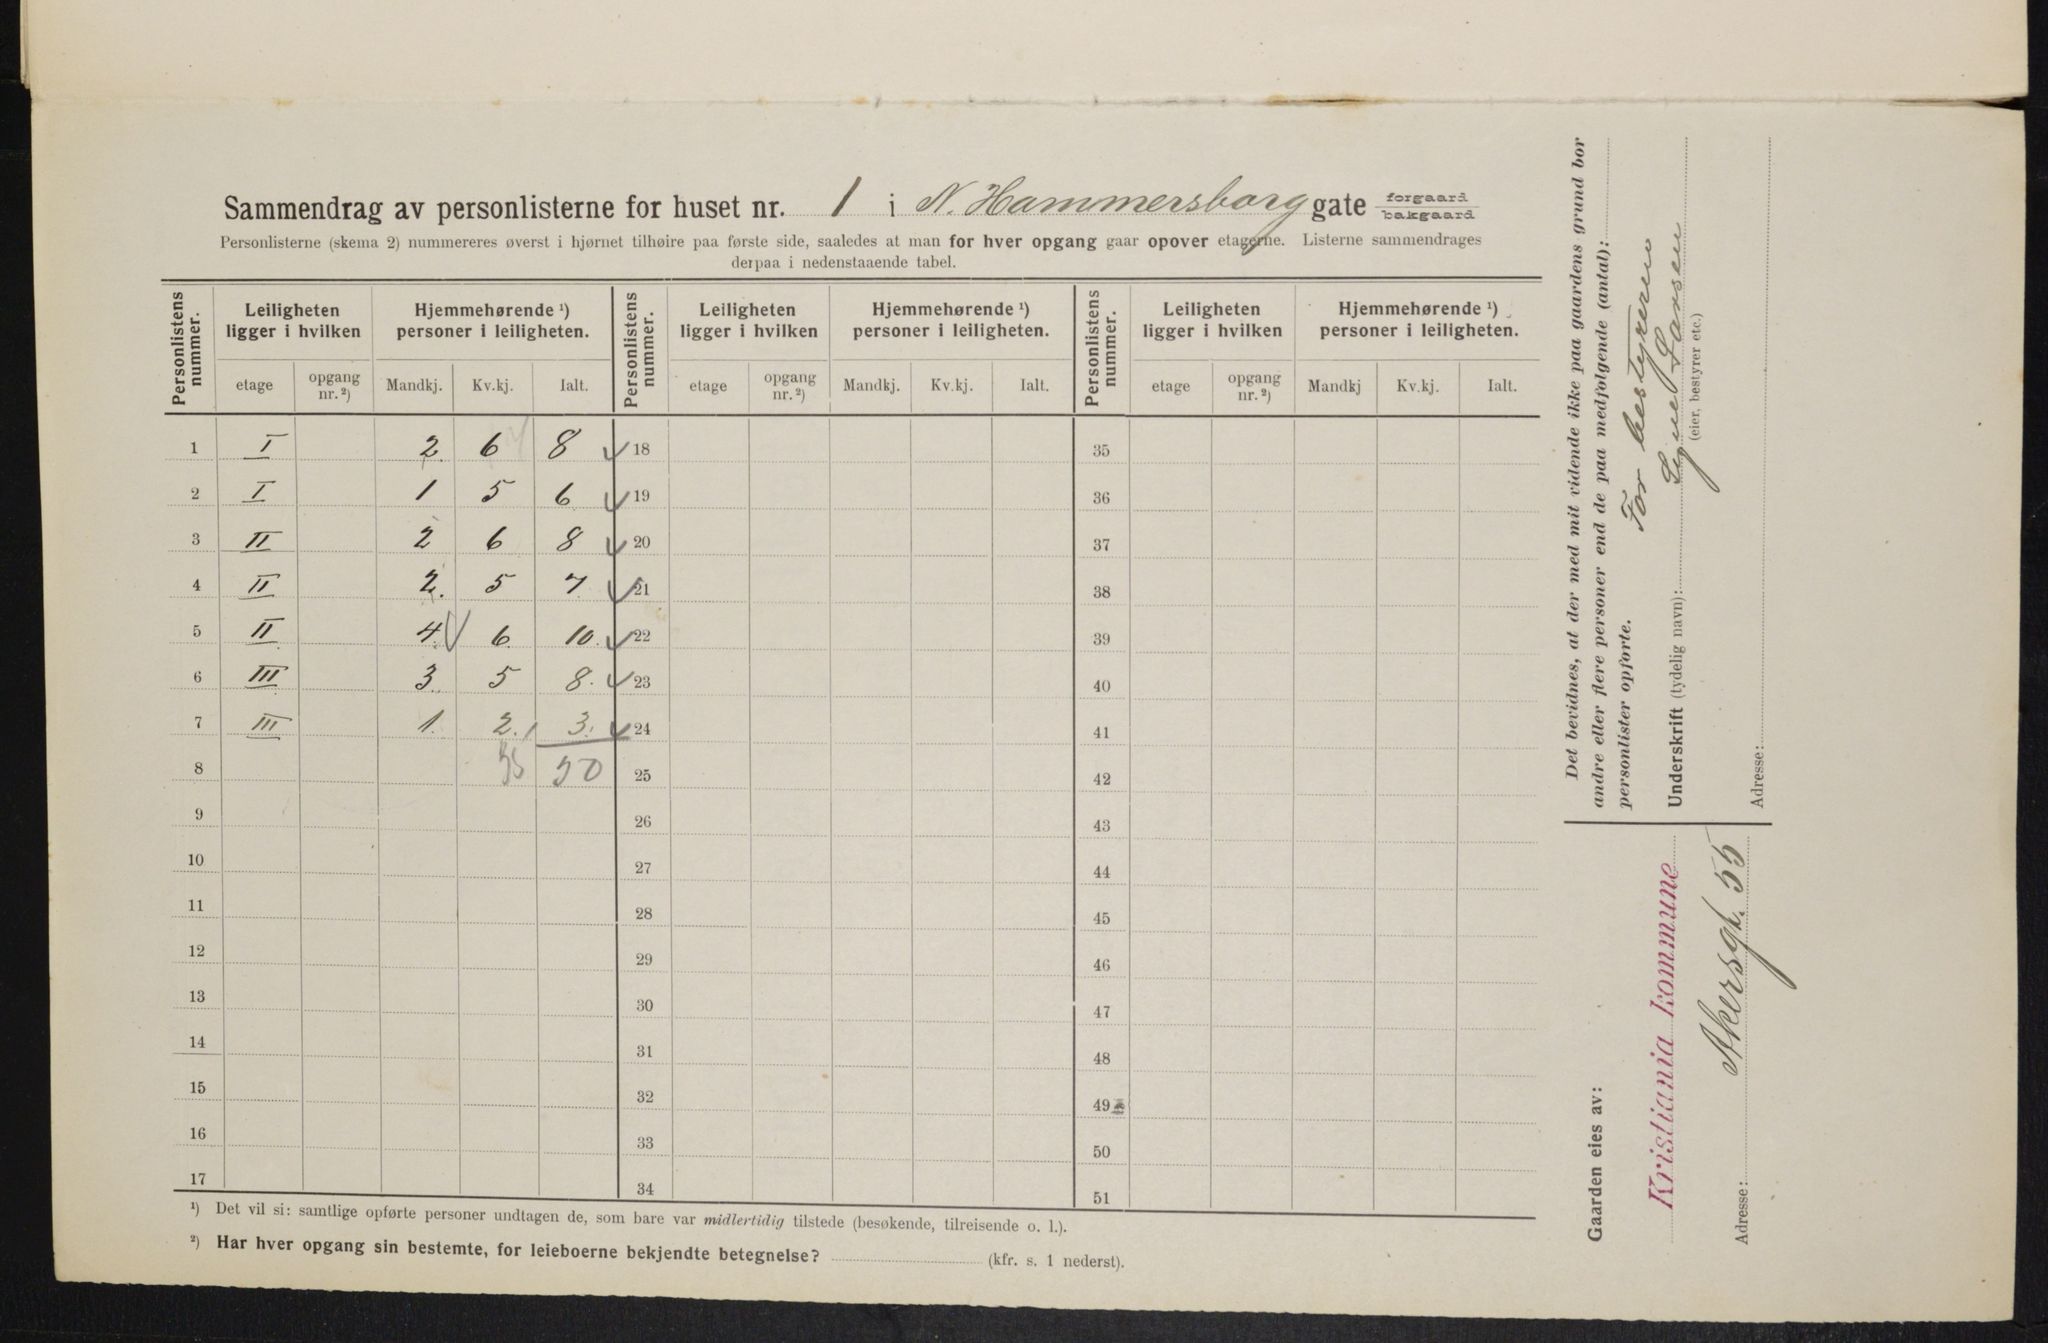 Sammendrag av personlisterne for huset nr. 1 i N. Hammersborg gate forgaard bakgaard
Personlisterne (skema 2) nummereres øverst i hjørnet tilhøire paa første side, saaledes at man for hver opgang gaar opover etagerne. Listerne sammendrages
derpaa i nedenstaaende tabel.
Personlistens nummer. Leiligheten ligger i hvilken Hjemmehørende ¹) personer i leiligheten. Personlistens nummer. Leiligheten ligger i hvilken Hjemmehørende ¹) personer i leiligheten. Personlistens nummer. Leiligheten ligger i hvilken Hjemmehørende ¹) personer i leiligheten.
etage opgang nr. ²) Mandkj. Kv.kj. Ialt. etage opgang nr. ²) Mandkj. Kv.kj. Ialt. etage opgang nr. ²) Mandkj Kv.kj. Ialt.
1 I 2. 6 8 18 35
2 I 1 5 6 19 36
3 II 2 6 8 20 37
4 II 2. 5 7 21 38
5 II 4. 6. 10. 22 39
6 III 3. 5 8. 23 40
7 III 1. 2. 3. 24 41
8 35 50 25 42
9 26 43
10 27 44
11 28 45
12 29 46
13 30 47
14 31 48
15 32 49
16 33 50
17 34 51
¹) Det vil si: samtlige opførte personer undtagen de, som bare var midlertidig tilstede (besøkende, tilreisende o. l.).
²) Har hver opgang sin bestemte, for leieboerne bekjendte betegnelse? (kfr. s. 1 nederst).
Det bevidnes, at der med mit vidende ikke paa gaardens grund bor
andre eller flere personer end de paa medfølgende (antal):
personlister opførte.
For bestyreren
Underskrift (tydelig navn): Signe Larsen
(eier, bestyrer etc.)
Adresse:
Gaarden eies av:
Kristiania kommune
Adresse: Akersgt. 55